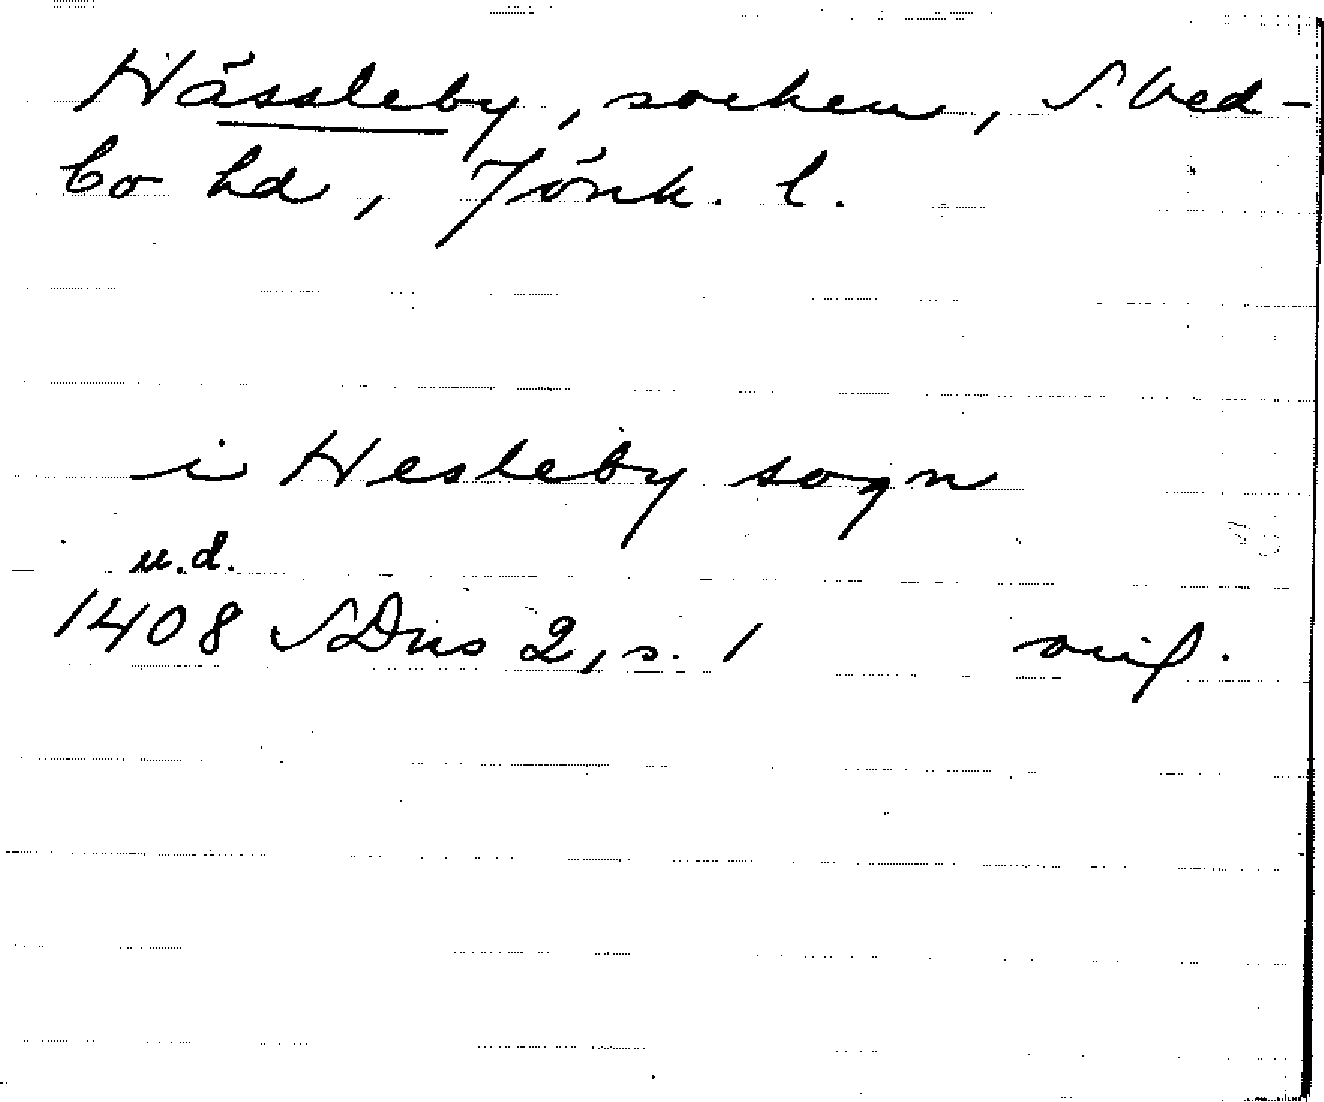 Hässleby, socken, S. Ved-
bo hd, Jönk. l.
i Hesleby sogn
u.d.
1408 SDns 2, s. 1 orig.